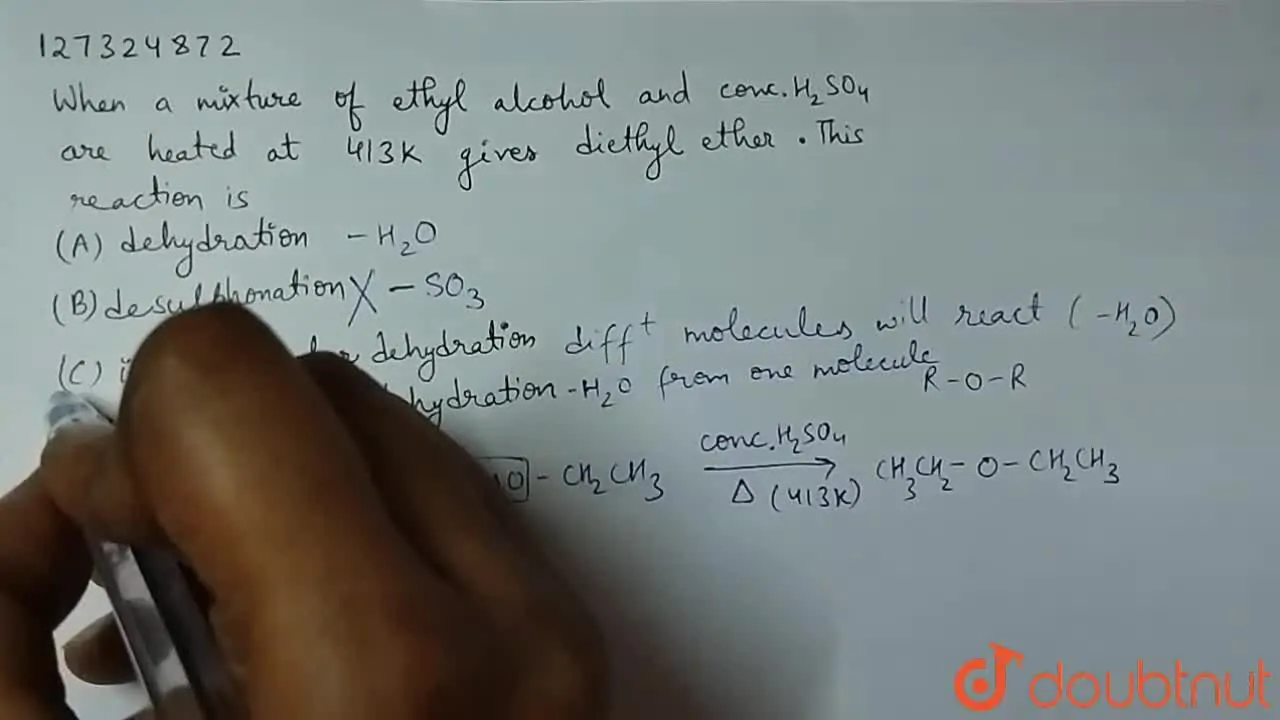 127324872
When a mixture of ethyl alcohol and conc. H2SO4
are heated at 413K gives diethyl ether. This
reaction is
(A) dehydration - H2O
(B) desulphonation X - SO3
(C) dehydration diff t molecules will react (-H2O)
-H2O from one molecule
R-O-R
conc. H2SO4
-CH2CH3 → CH3CH2-O-CH2CH3
Δ (413K)
doubtnut